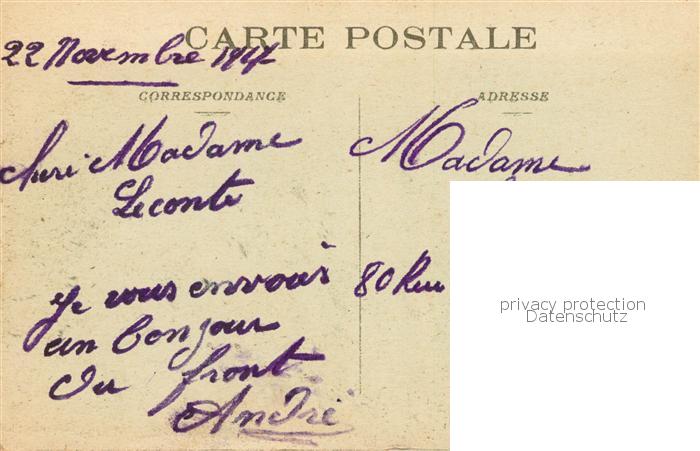 CARTE POSTALE
22 Novembre 1917
CORRESPONDANCE
Cheri Madame
Leconte
Je vous envois
un bonjour
du front
André
ADRESSE
Madame
80 Rue
privacy protection
Datenschutz